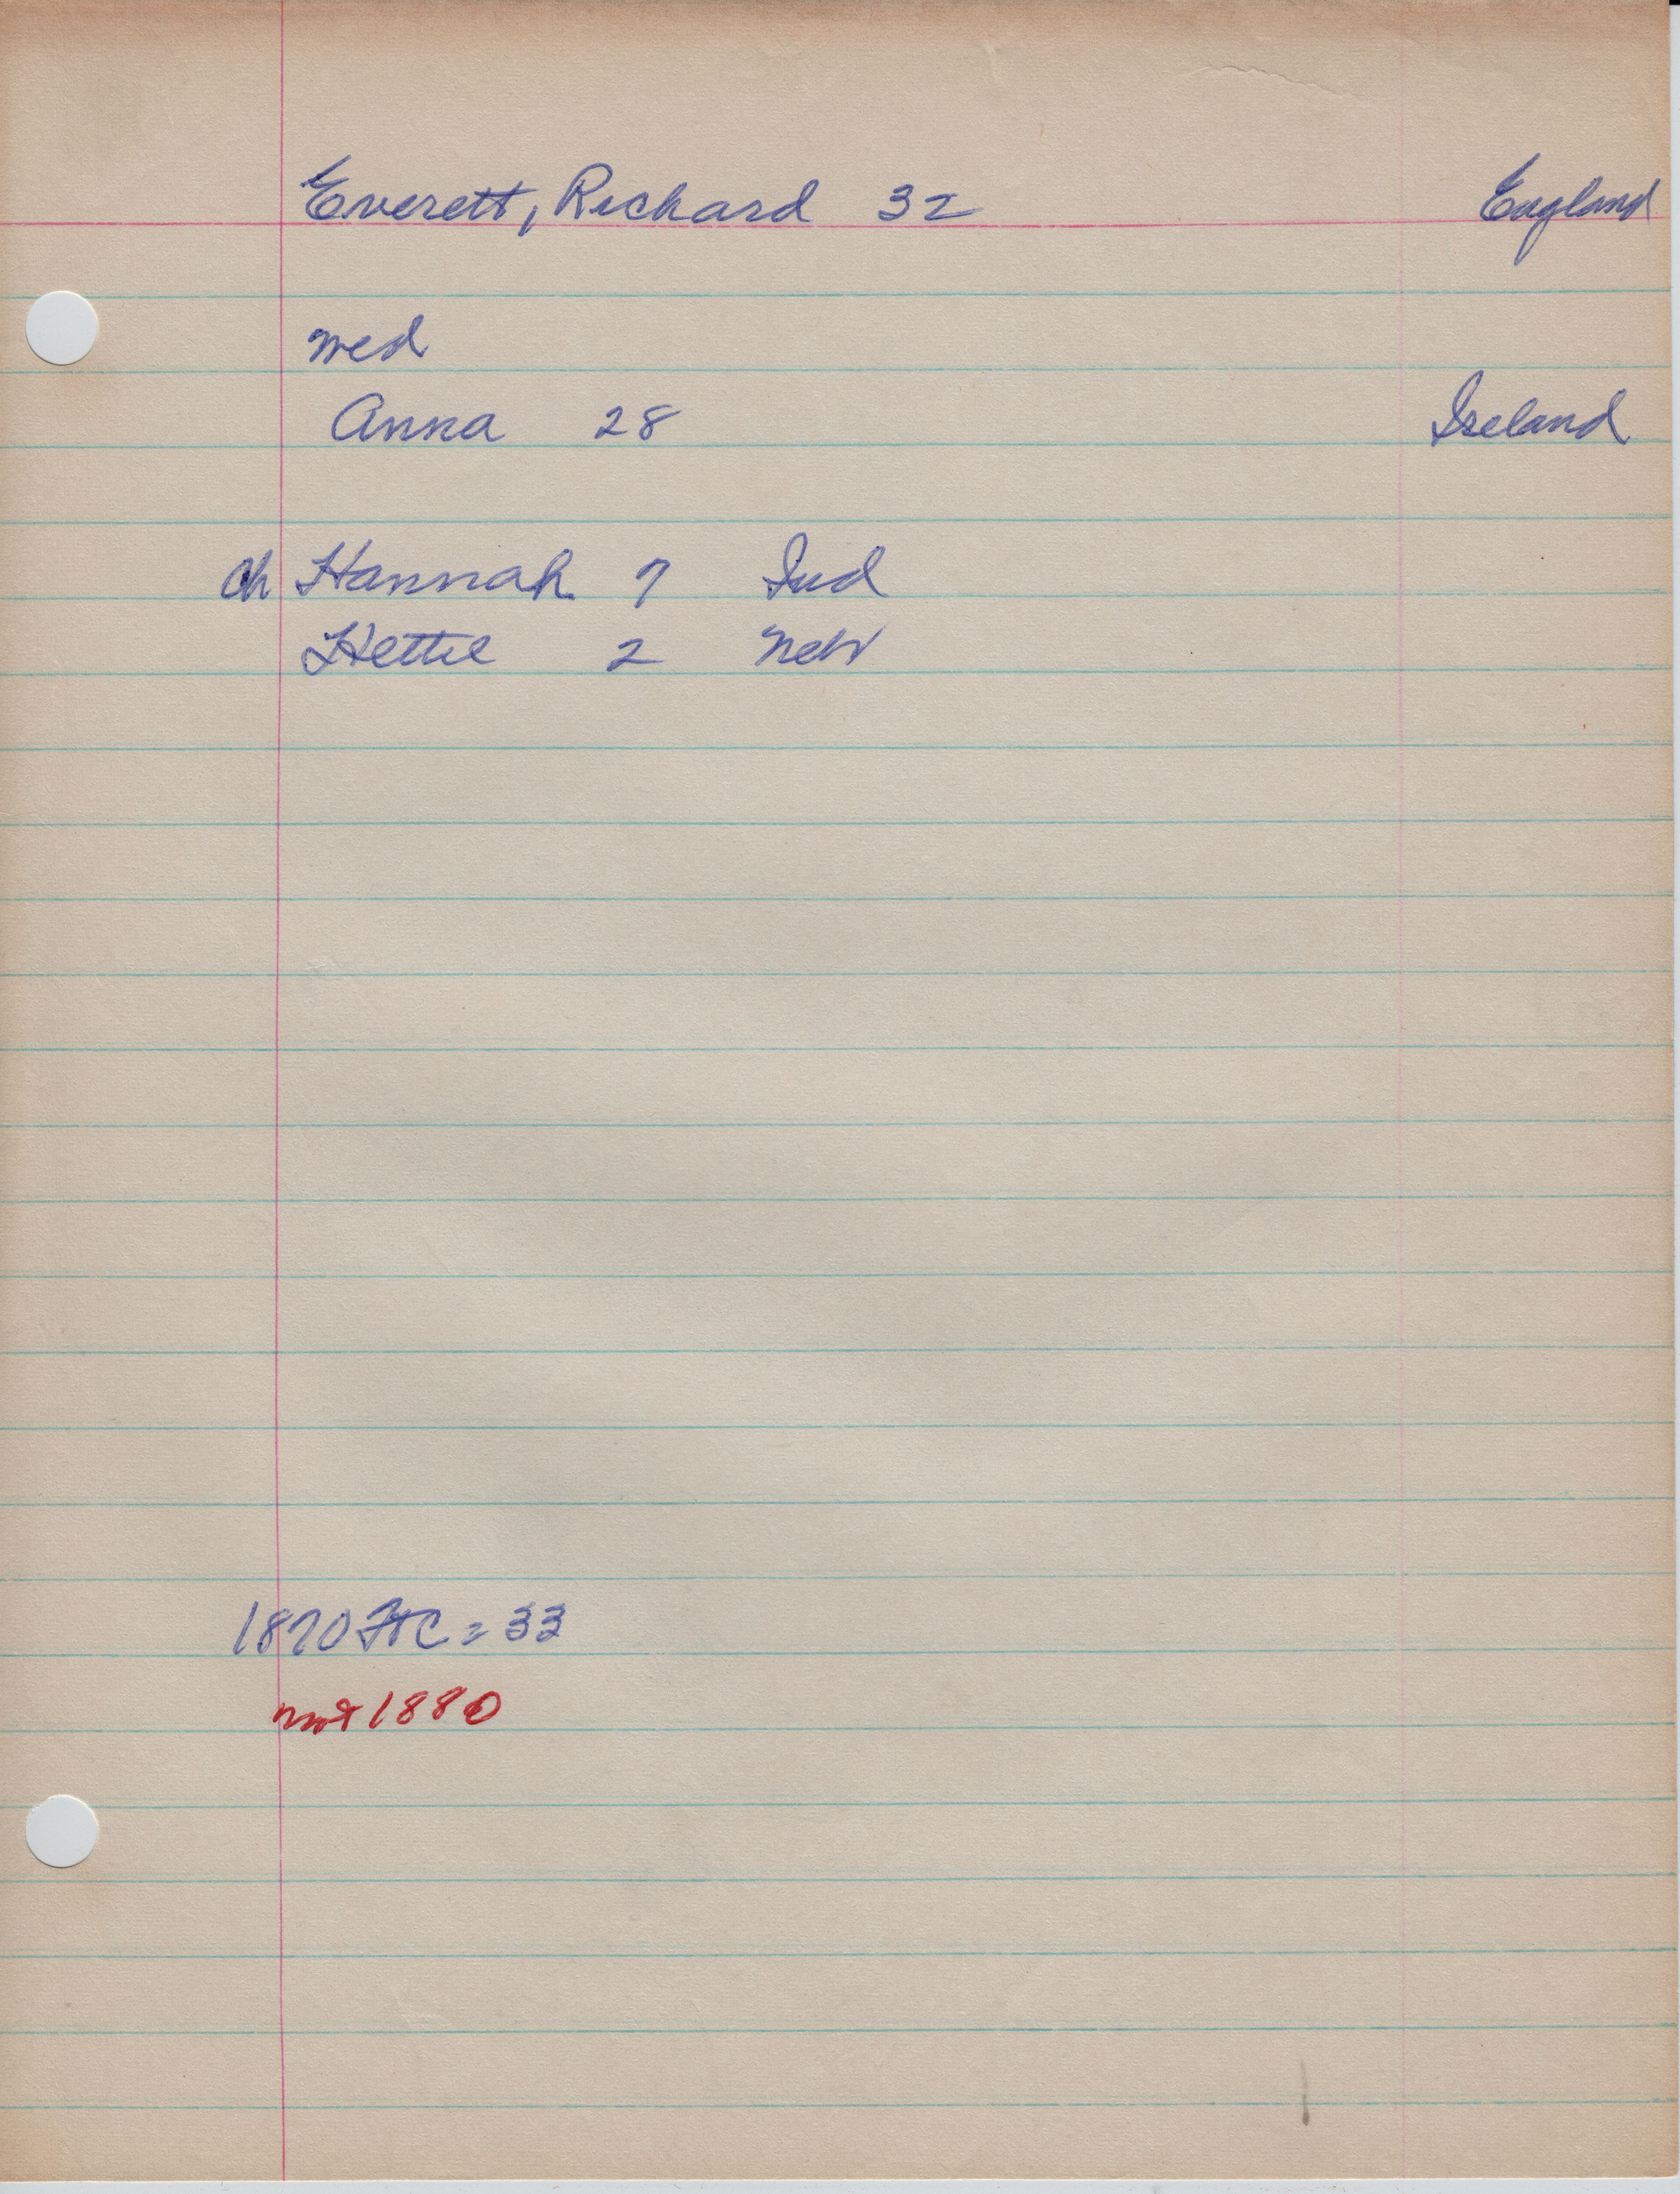 Everett, Richard 32 England
med
Anna 28 Ireland
ch Hannah 7 Ind
Hettie 2 Neb
1870 FtC = 33
not 1880